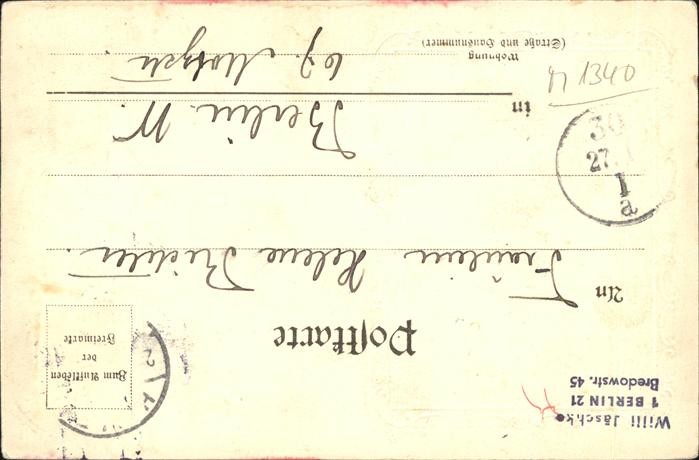 Willi Jäschke
1 BERLIN 21
Bredowstr. 45
Postkarte
Zum Aufkleben
der
Freimarke
An Fräulein Helene Richter.
in Berlin W.
Wohnung
(Straße und Hausnummer)
69.
1340
30
27.
1
a